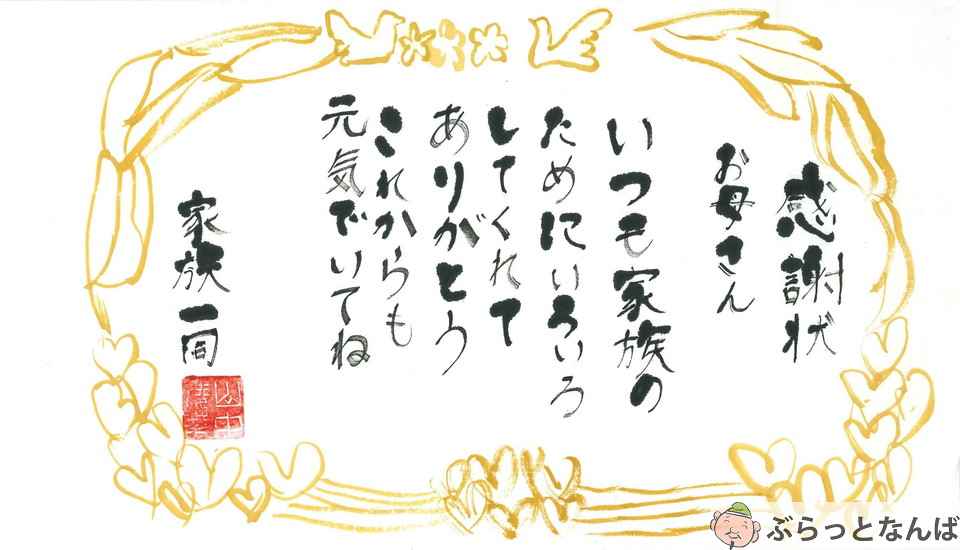 感謝状
お母さん
いつも家族の
ためにいろいろ
してくれて
ありがとう
これからも
元気でいてね
家族一同
ぶらっとなんば